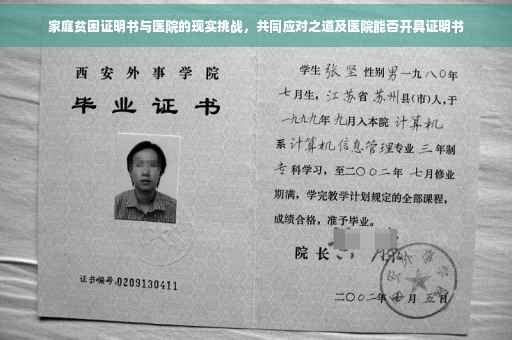 家庭贫困证明书与医院的现实挑战，共同应对之道及医院能否开具证明书
西安外事学院
毕业证书
证书编号:0209130411
学生张坚性别男一九八〇年
七月生，江苏省苏州县(市)人，于
一九九九年九月入本院计算机
系计算机信息管理专业三年制
专科学习，至二〇〇二年七月修业
期满，学完教学计划规定的全部课程，
成绩合格，准予毕业。
院长
二〇〇二年 月五日